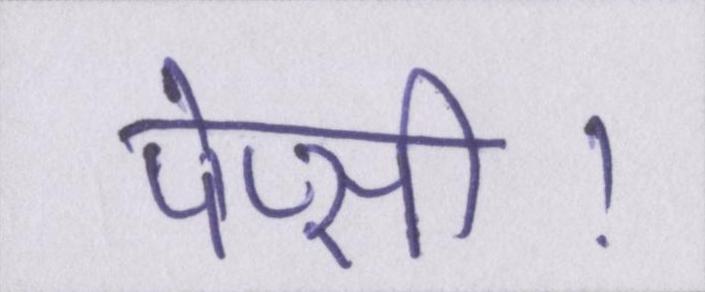 पेप्सी !